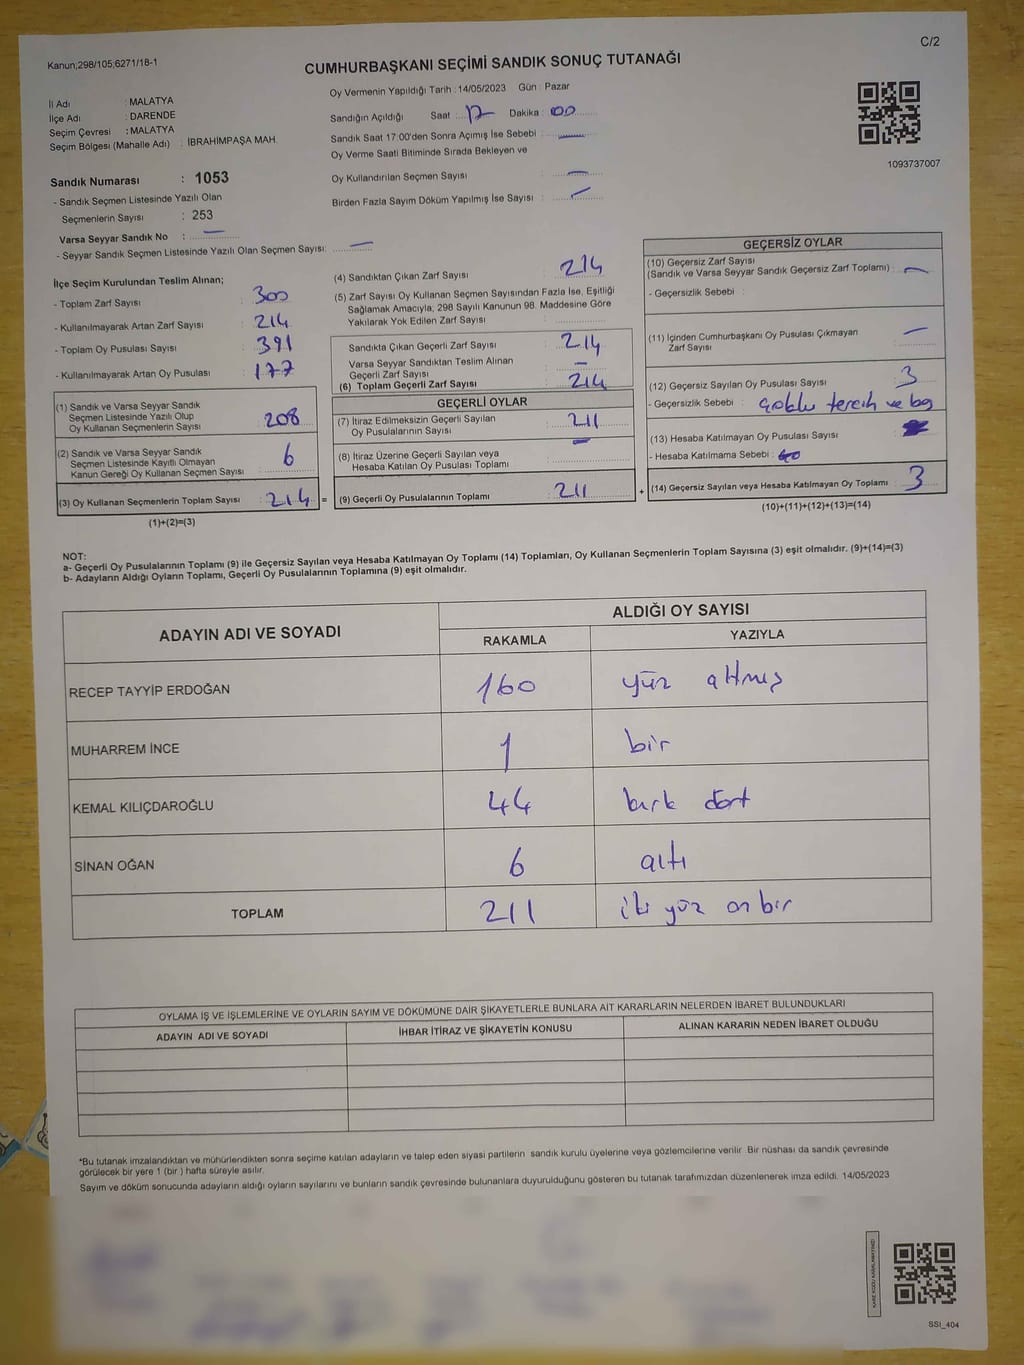 C/2
Kanun;298/105;6271/18-1
CUMHURBAŞKANI SEÇİMİ SANDIK SONUÇ TUTANAĞI
İl Adı : MALATYA
İlçe Adı : DARENDE
Seçim Çevresi : MALATYA
Seçim Bölgesi (Mahalle Adı) : İBRAHİMPAŞA MAH.
Oy Vermenin Yapıldığı Tarih : 14/05/2023 Gün : Pazar
Sandığın Açıldığı Saat : 17 Dakika : 00
Sandık Saat 17:00'den Sonra Açımış İse Sebebi : —
Oy Verme Saati Bitiminde Sırada Bekleyen ve
Oy Kullandırılan Seçmen Sayısı : —
Birden Fazla Sayım Döküm Yapılmış İse Sayısı : —
1093737007
Sandık Numarası : 1053
- Sandık Seçmen Listesinde Yazılı Olan
Seçmenlerin Sayısı : 253
Varsa Seyyar Sandık No : —
- Seyyar Sandık Seçmen Listesinde Yazılı Olan Seçmen Sayısı: —
İlçe Seçim Kurulundan Teslim Alınan;
- Toplam Zarf Sayısı : 300
- Kullanılmayarak Artan Zarf Sayısı : 214
- Toplam Oy Pusulası Sayısı : 391
- Kullanılmayarak Artan Oy Pusulası : 177
(1) Sandık ve Varsa Seyyar Sandık
Seçmen Listesinde Yazılı Olup
Oy Kullanan Seçmenlerin Sayısı : 208
(2) Sandık ve Varsa Seyyar Sandık
Seçmen Listesinde Kayıtlı Olmayan
Kanun Gereği Oy Kullanan Seçmen Sayısı : 6
(3) Oy Kullanan Seçmenlerin Toplam Sayısı : 214 =
(1)+(2)=(3)
(4) Sandıktan Çıkan Zarf Sayısı : 214
(5) Zarf Sayısı Oy Kullanan Seçmen Sayısından Fazla İse, Eşitliği
Sağlamak Amacıyla, 298 Sayılı Kanunun 98. Maddesine Göre
Yakılarak Yok Edilen Zarf Sayısı :
Sandıkta Çıkan Geçerli Zarf Sayısı : 214
Varsa Seyyar Sandıktan Teslim Alınan
Geçerli Zarf Sayısı : —
(6) Toplam Geçerli Zarf Sayısı : 214
GEÇERLİ OYLAR
(7) İtiraz Edilmeksizin Geçerli Sayılan
Oy Pusulalarının Sayısı : 211
(8) İtiraz Üzerine Geçerli Sayılan veya
Hesaba Katılan Oy Pusulası Toplamı : —
(9) Geçerli Oy Pusulalarının Toplamı : 211 +
GEÇERSİZ OYLAR
(10) Geçersiz Zarf Sayısı
(Sandık ve Varsa Seyyar Sandık Geçersiz Zarf Toplamı) : —
- Geçersizlik Sebebi :
(11) İçinden Cumhurbaşkanı Oy Pusulası Çıkmayan
Zarf Sayısı : —
(12) Geçersiz Sayılan Oy Pusulası Sayısı : 3
- Geçersizlik Sebebi : tercih ve
(13) Hesaba Katılmayan Oy Pusulası Sayısı :
- Hesaba Katılmama Sebebi :
(14) Geçersiz Sayılan veya Hesaba Katılmayan Oy Toplamı : 3
(10)+(11)+(12)+(13)=(14)
NOT:
a- Geçerli Oy Pusulalarının Toplamı (9) ile Geçersiz Sayılan veya Hesaba Katılmayan Oy Toplamı (14) Toplamları, Oy Kullanan Seçmenlerin Toplam Sayısına (3) eşit olmalıdır. (9)+(14)=(3)
b- Adayların Aldığı Oyların Toplamı, Geçerli Oy Pusulalarının Toplamına (9) eşit olmalıdır.
ADAYIN ADI VE SOYADI
ALDIĞI OY SAYISI
RAKAMLA YAZIYLA
RECEP TAYYİP ERDOĞAN 160 yüz altmış
MUHARREM İNCE 1 bir
KEMAL KILIÇDAROĞLU 44 kırk dört
SİNAN OĞAN 6 altı
TOPLAM 211 iki yüz on bir
OYLAMA İŞ VE İŞLEMLERİNE VE OYLARIN SAYIM VE DÖKÜMÜNE DAİR ŞİKAYETLERLE BUNLARA AİT KARARLARIN NELERDEN İBARET BULUNDUKLARI
ADAYIN ADI VE SOYADI İHBAR İTİRAZ VE ŞİKAYETİN KONUSU ALINAN KARARIN NEDEN İBARET OLDUĞU
*Bu tutanak imzalandıktan ve mühürlendikten sonra seçime katılan adayların ve talep eden siyasi partilerin sandık kurulu üyelerine veya gözlemcilerine verilir. Bir nüshası da sandık çevresinde
görülecek bir yere 1 (bir ) hafta süreyle asılır.
Sayım ve döküm sonucunda adayların aldığı oyların sayılarını ve bunların sandık çevresinde bulunanlara duyurulduğunu gösteren bu tutanak tarafımızdan düzenlenerek imza edildi. 14/05/2023
KARE KODU KARALAMAYINIZ!
SSI_404